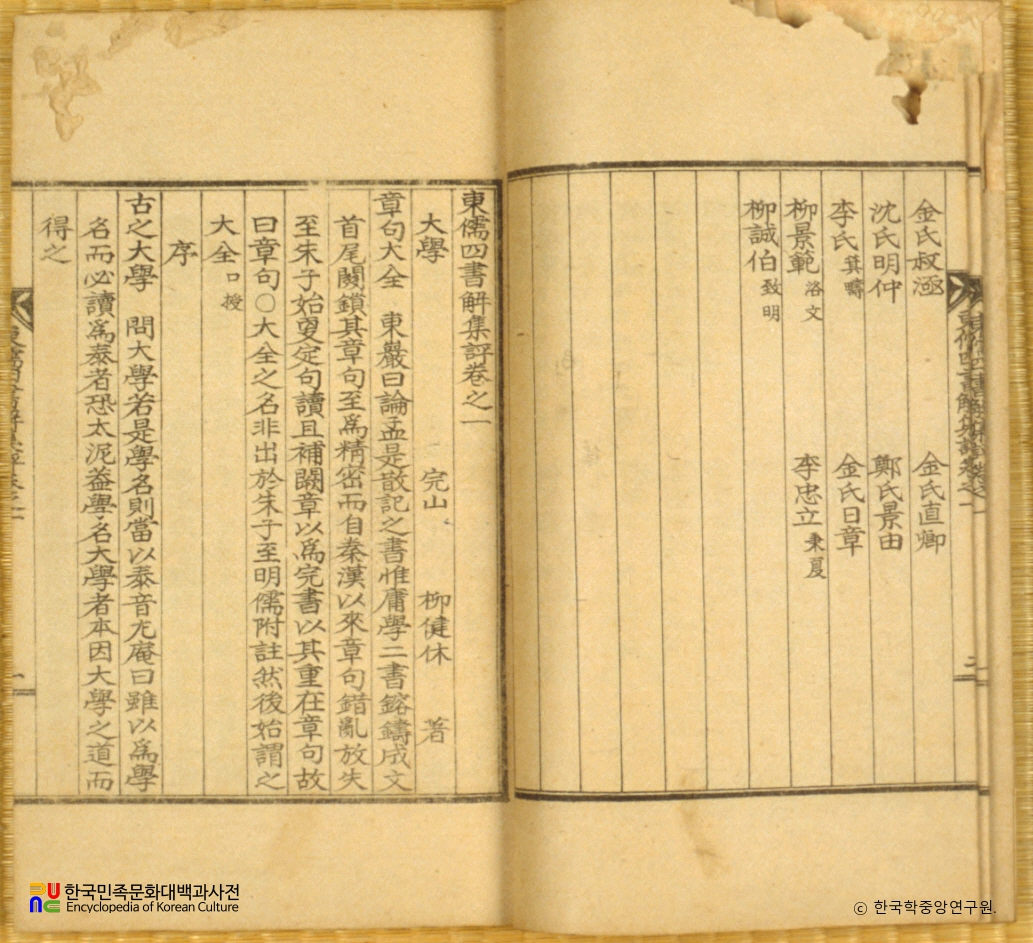 金氏叔涵 金氏直卿
沈氏明仲 鄭氏景由
李氏箕疇 金氏日章
柳景範洛文 李忠立秉夏
柳誠伯致明
東儒四書解集評卷之一
大學 完山 柳健休 著
章句大全 東巖曰論孟是散記之書惟庸學二書鎔鑄成文
首尾關鎖其章句至爲精密而自秦漢以來章句錯亂放失
至朱子始更定句讀且補闕章以爲完書以其重在章句故
曰章句○大全之名非出於朱子至明儒附註然後始謂之
大全口授
序
古之大學 問大學若是學名則當以泰音尤庵曰雖以爲學
名而必讀爲泰者恐太泥盖學名大學者本因大學之道而
得之
한국민족문화대백과사전
Encyclopedia of Korean Culture
ⓒ 한국학중앙연구원.